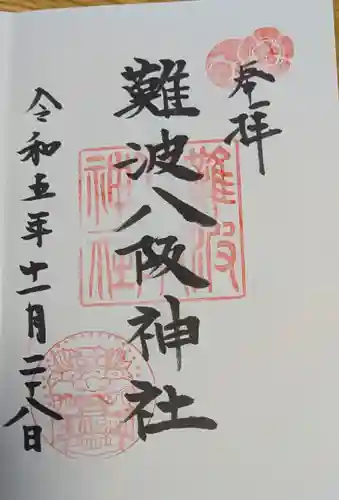 参拝
難波八阪神社
令和五年十一月二十八日
難波
神社